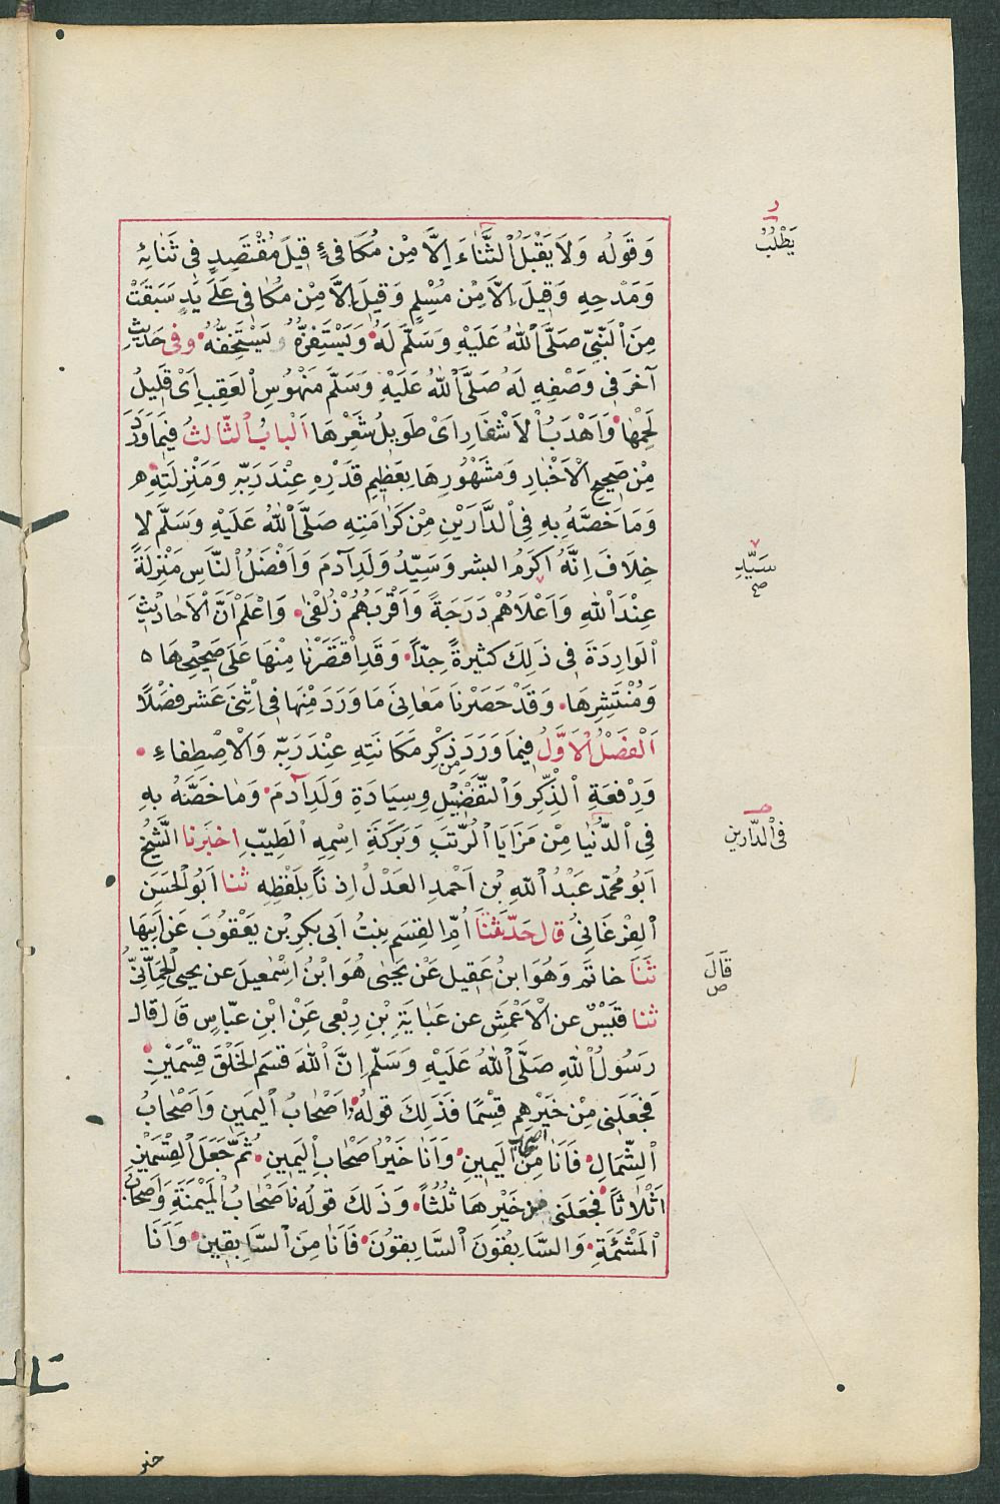 يَطْلُبُ
وَقَولُه وَلاَ يَقْبَلُ اْلثَّنَاءَ اِلاَّ مِنْ مُكَافِئٍ قِيلَ مُقْتَصِدٍ فى ثَنَائِهِ
وَمَدْحِهِ وَقِيلَ اِلاَّ مِنْ مُسْلِمٍ وَقِيلَ اِلاَّ مِنْ مكافى عَلَى يَدٍ سَبَقَتْ
مِنَ اْلنَّبِىِّ صَلَّى اْللهُ عَلَيْهِ وَسَلَّمَ لَهُ وَيَسْتَفِزُّهُ وَيَسْتَخِفُّهُ وفى حَدِيثٍ
آخَرَ فى وَصْفِهِ لَهُ صَلَّى اْللهُ عَلَيْهِ وَسَلَّمَ مَنْهُوسِ العَقِبِ اَىْ قَلِيلُ
لَحْمِهَا وَاَهْدَبُ اْلاَشْفَارِ اَىْ طَوِيلُ شَعْرِهَا اَلْبابُ اْلثَّالِثُ فِيمَا وَرَدَ
مِنْ صَحِيحِ اْلاَخْبَارِ وَمَشْهُورِهَا بِعَظِيمِ قَدْرِهِ عِنْدَ رَبِّهِ وَمَنْزِلَتِهِ
وَمَا خَصَّهُ بِهِ فِى اْلدَّارَيْنِ مِنْ كَرَامَتِهِ صَلَّى اْللهُ عَلَيْهِ وَسَلَّمَ لا
خِلَافَ اِنَّهُ اكرَمُ البشر وَسَيِّدُ وَلَدِ آدَمَ وَاَفْضَلُ اْلنَّاسِ مَنْزِلَةً
سَيِّدِ صح
عِنْدَ اْللهِ وَاَعْلَاهُمْ دَرَجَةً وَاَقْرَبُهُمْ زُلْفٰى وَاعْلَمْ اَنَّ اْلاَحَادِيثَ
اْلوَارِدَةَ فى ذَلِكَ كَثِيرَةً جِدّاً وَقَدِ اقْتَصَرْنا مِنْهَا عَلَى صَحِيحِهَا
وَمُنْتَشِرِهَا وَقَدْ حَصَرْنا مَعَانِىَ مَا وَرَدَ مِنْهَا فى اثْنَىْ عَشَر فَصْلاً
اَلْفَصْلُ اْلاَوَّلُ فِيمَا وَرَدَ مِن ذِكْرِ مَكَانَتِهِ عِنْدَ رَبِّهِ وَاْلاِصْطِفاءِ
وَرِفْعَةِ اْلذِّكْرِ وَاْلتَّفْضِيلِ وسِيَادَةِ وَلَدِ آدَمَ وَمَا خَصَّهُ بِهِ
فِى اْلدُّنْيَا مِنْ مَزَايَا اْلرُّتَبِ وَبَرَكَةِ اسْمِهِ اْلطَيِّبِ اخبَرنا الشَّيْخُ
فى اْلدَّارين
اَبُو مُحَمَّد عَبْدُ اْللهِ بْن اَحْمدِ العَدْلُ اِذناً بِلَفْظِهِ ثنا اَبُو اْلحَسَنِ
اْلفَرْغَانِىُّ قال حَدَّثَتْنَا اُمُّ القِسَمِ بِنتُ اَبى بكرِ بْنِ يَعْقُوبَ عَن اَبِيَها
قَالَ ص
ثَنَا حَاتم وَهُوَ ابنُ عَقِيل عَنْ يَحْيٰى هُوَ ابْنُ اِسْمٰعِيلَ عن يحيى اْلحِمَّانِىِّ
ثنا قَيْسٌ عن اْلاَعْمَشِ عن عَبَايَةَ بْنِ رِبْعى عَنْ ابْنِ عَبّاسٍ قَالَ قالَ
رَسُولُ اْللهِ صَلَّى اْللهُ عَلَيْهِ وَسَلَّمَ اِنَّ اْللهَ قَسَمَ الخَلْقَ قِسْمَيْنِ
فَجَعَلَنِى مِنْ خَيْرِهِم قِسْمًا فَذَلِكَ قولهُ اَصْحَابُ اْليَمِينِ وَاَصْحَابُ
اْلشِّمَالِ فَاَنَا مِنْ اصحاب اْليَمِينِ وَاَنَا خَيْرُ اَصْحَابِ اْليَمِينِ ثُمَّ جَعَلَ اْلقِسْمَيْنِ
اَثْلاَثاً فَجَعَلَنى مِن خَيْرِهَا ثُلُثًا وَذَلكَ قولُه فَاَصْحَابُ الْمَيْمَنَةِ وَاَصْحَابُ
اْلمَشْئَمَةِ وَالسَّابِقُونَ اْلسَّابِقوُنَ فَاَنَا مِنَ اْلسَّابِقِينَ وَاَنَا
خير